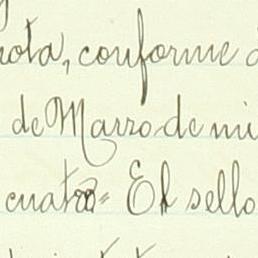 nota, conforme
de Marzo de mi
cuatro= El sello